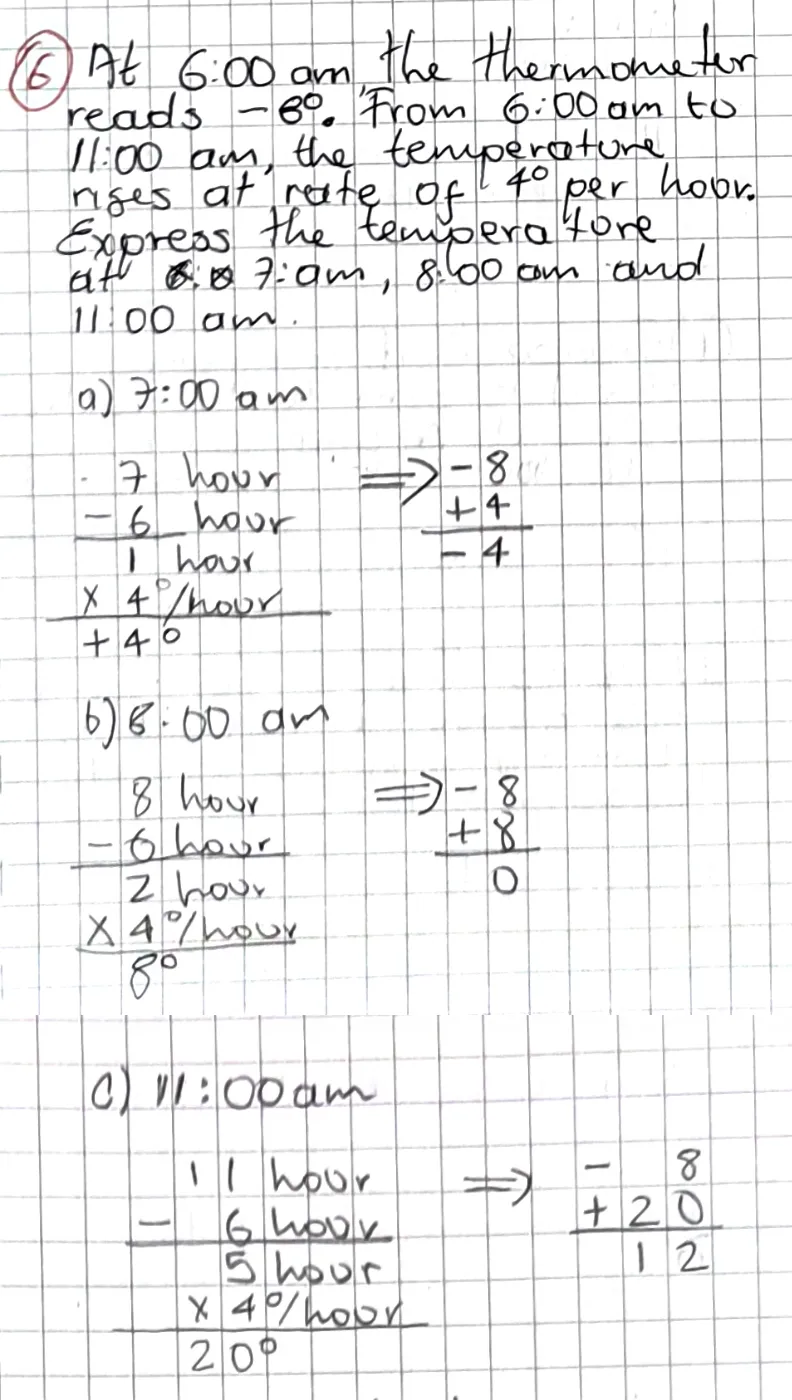 6 At 6:00 am, the thermometer
reads -8°. From 6:00 am to
11:00 am, the temperature
rises at rate of 4° per hour.
Express the temperature
at 7:am, 8:00 am and
11:00 am.
a) 7:00 am
7 hour ⇒ - 8
- 6 hour + 4
1 hour - 4
x 4°/hour
+ 4°
b) 8:00 am
8 hour ⇒ - 8
- 6 hour + 8
2 hour 0
x 4°/hour
8°
c) 11:00 am
11 hour ⇒ - 8
- 6 hour + 20
5 hour 12
x 4°/hour
20°